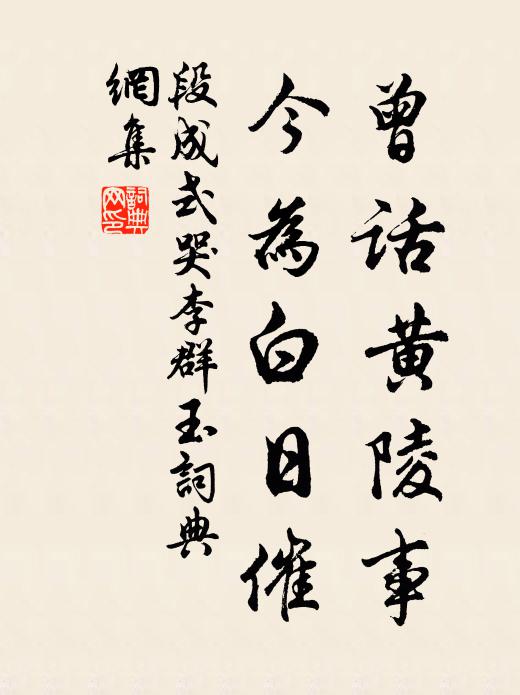 曾話黃陵事
今為白日催
段成式哭李群玉詞典
網集
詞典
網印